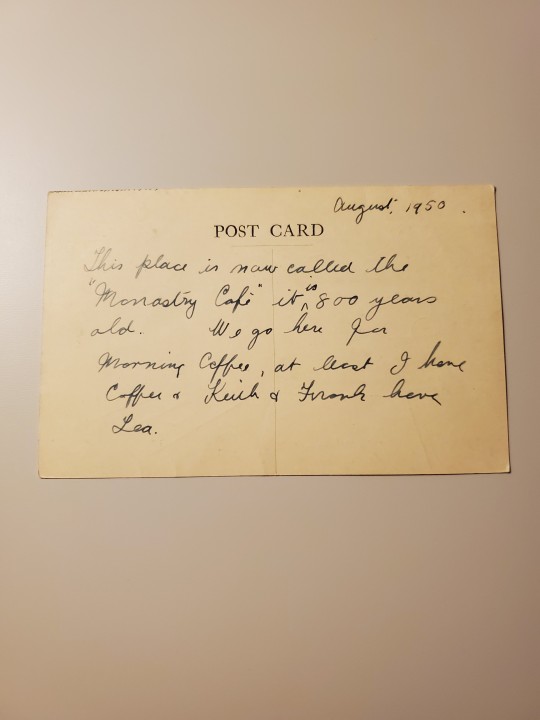 August, 1950.
POST CARD
This place is now called the
"Monastry Café" it is 800 years
old. We go here for
Morning Coffee, at least I have
Coffee & Keith & Frank have
Tea.